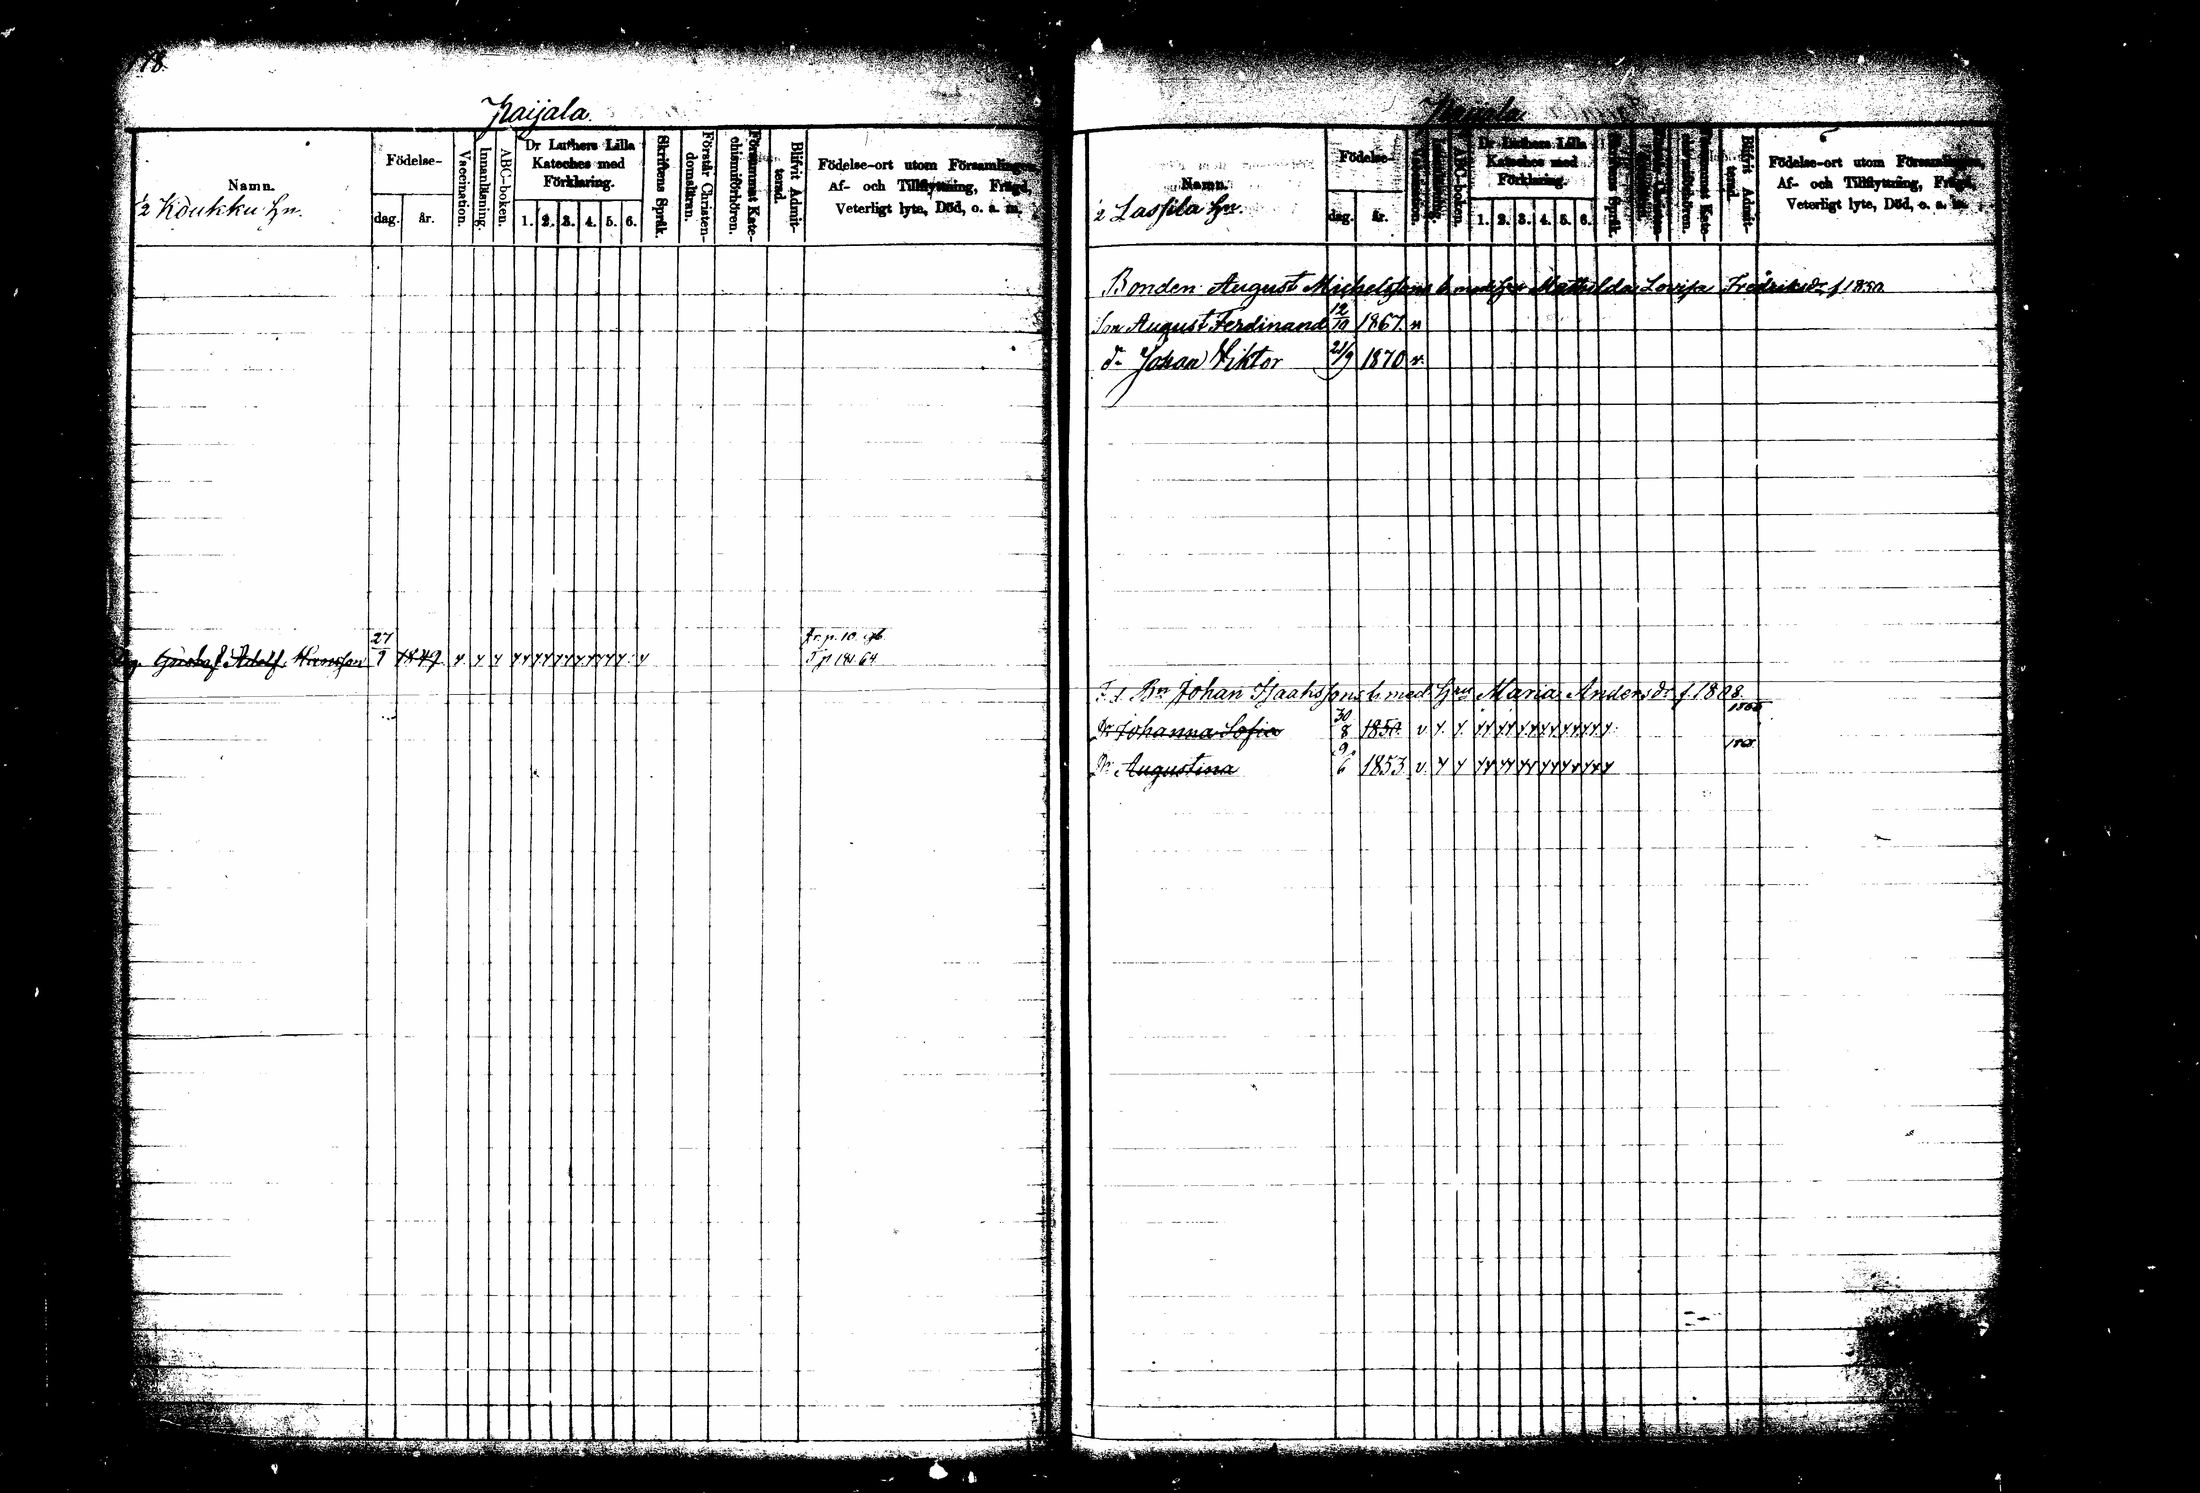 178.
Kaijala.
Namn.
½ Koukku Hn.
Födelse-
dag.
år.
Vaccination.
Innanläsning.
ABC-boken.
Dr Luthers Lilla
Kateches med
Förklaring.
1. 2. 3. 4. 5. 6.
Skriftens Språk.
Förstår Christen-
domsläran.
Försummat Kate-
chismiförhören.
Blifvit Admit-
terad.
Födelse-ort utom Församlingen,
Af- och Tillflyttning, Frägd,
Veterligt lyte, Död, o. a. m.
Gustaf Adolf Hansson 27/9 1849
Fr. p. 10
T p 181. 64
Kaijala
Namn.
½ Lassila Hn.
Födelse-
dag.
år.
Vaccination.
Innanläsning.
ABC-boken.
Dr Luthers Lilla
Kateches med
Förklaring.
1. 2. 3. 4. 5. 6.
Skriftens Språk.
Försummat Kate-
chismiförhören.
Blifvit Admit-
terad.
Födelse-ort utom Församlingen,
Af- och Tillflyttning, Frägd,
Veterligt lyte, Död, o. a. m.
Bonden August Michelssons b. med Hu Mathilda Lovisa Fredriksdr f. 1850.
Son August Ferdinand 12/10 1867. v
d:o Johan Viktor 21/9 1870 v.
F. d. Bn Johan Isaakssons b. med Hu Maria Andersdr f. 1808.
Dr Johanna Sofia 30/8 1850 v
Dr Augustina 9/6 1853 v